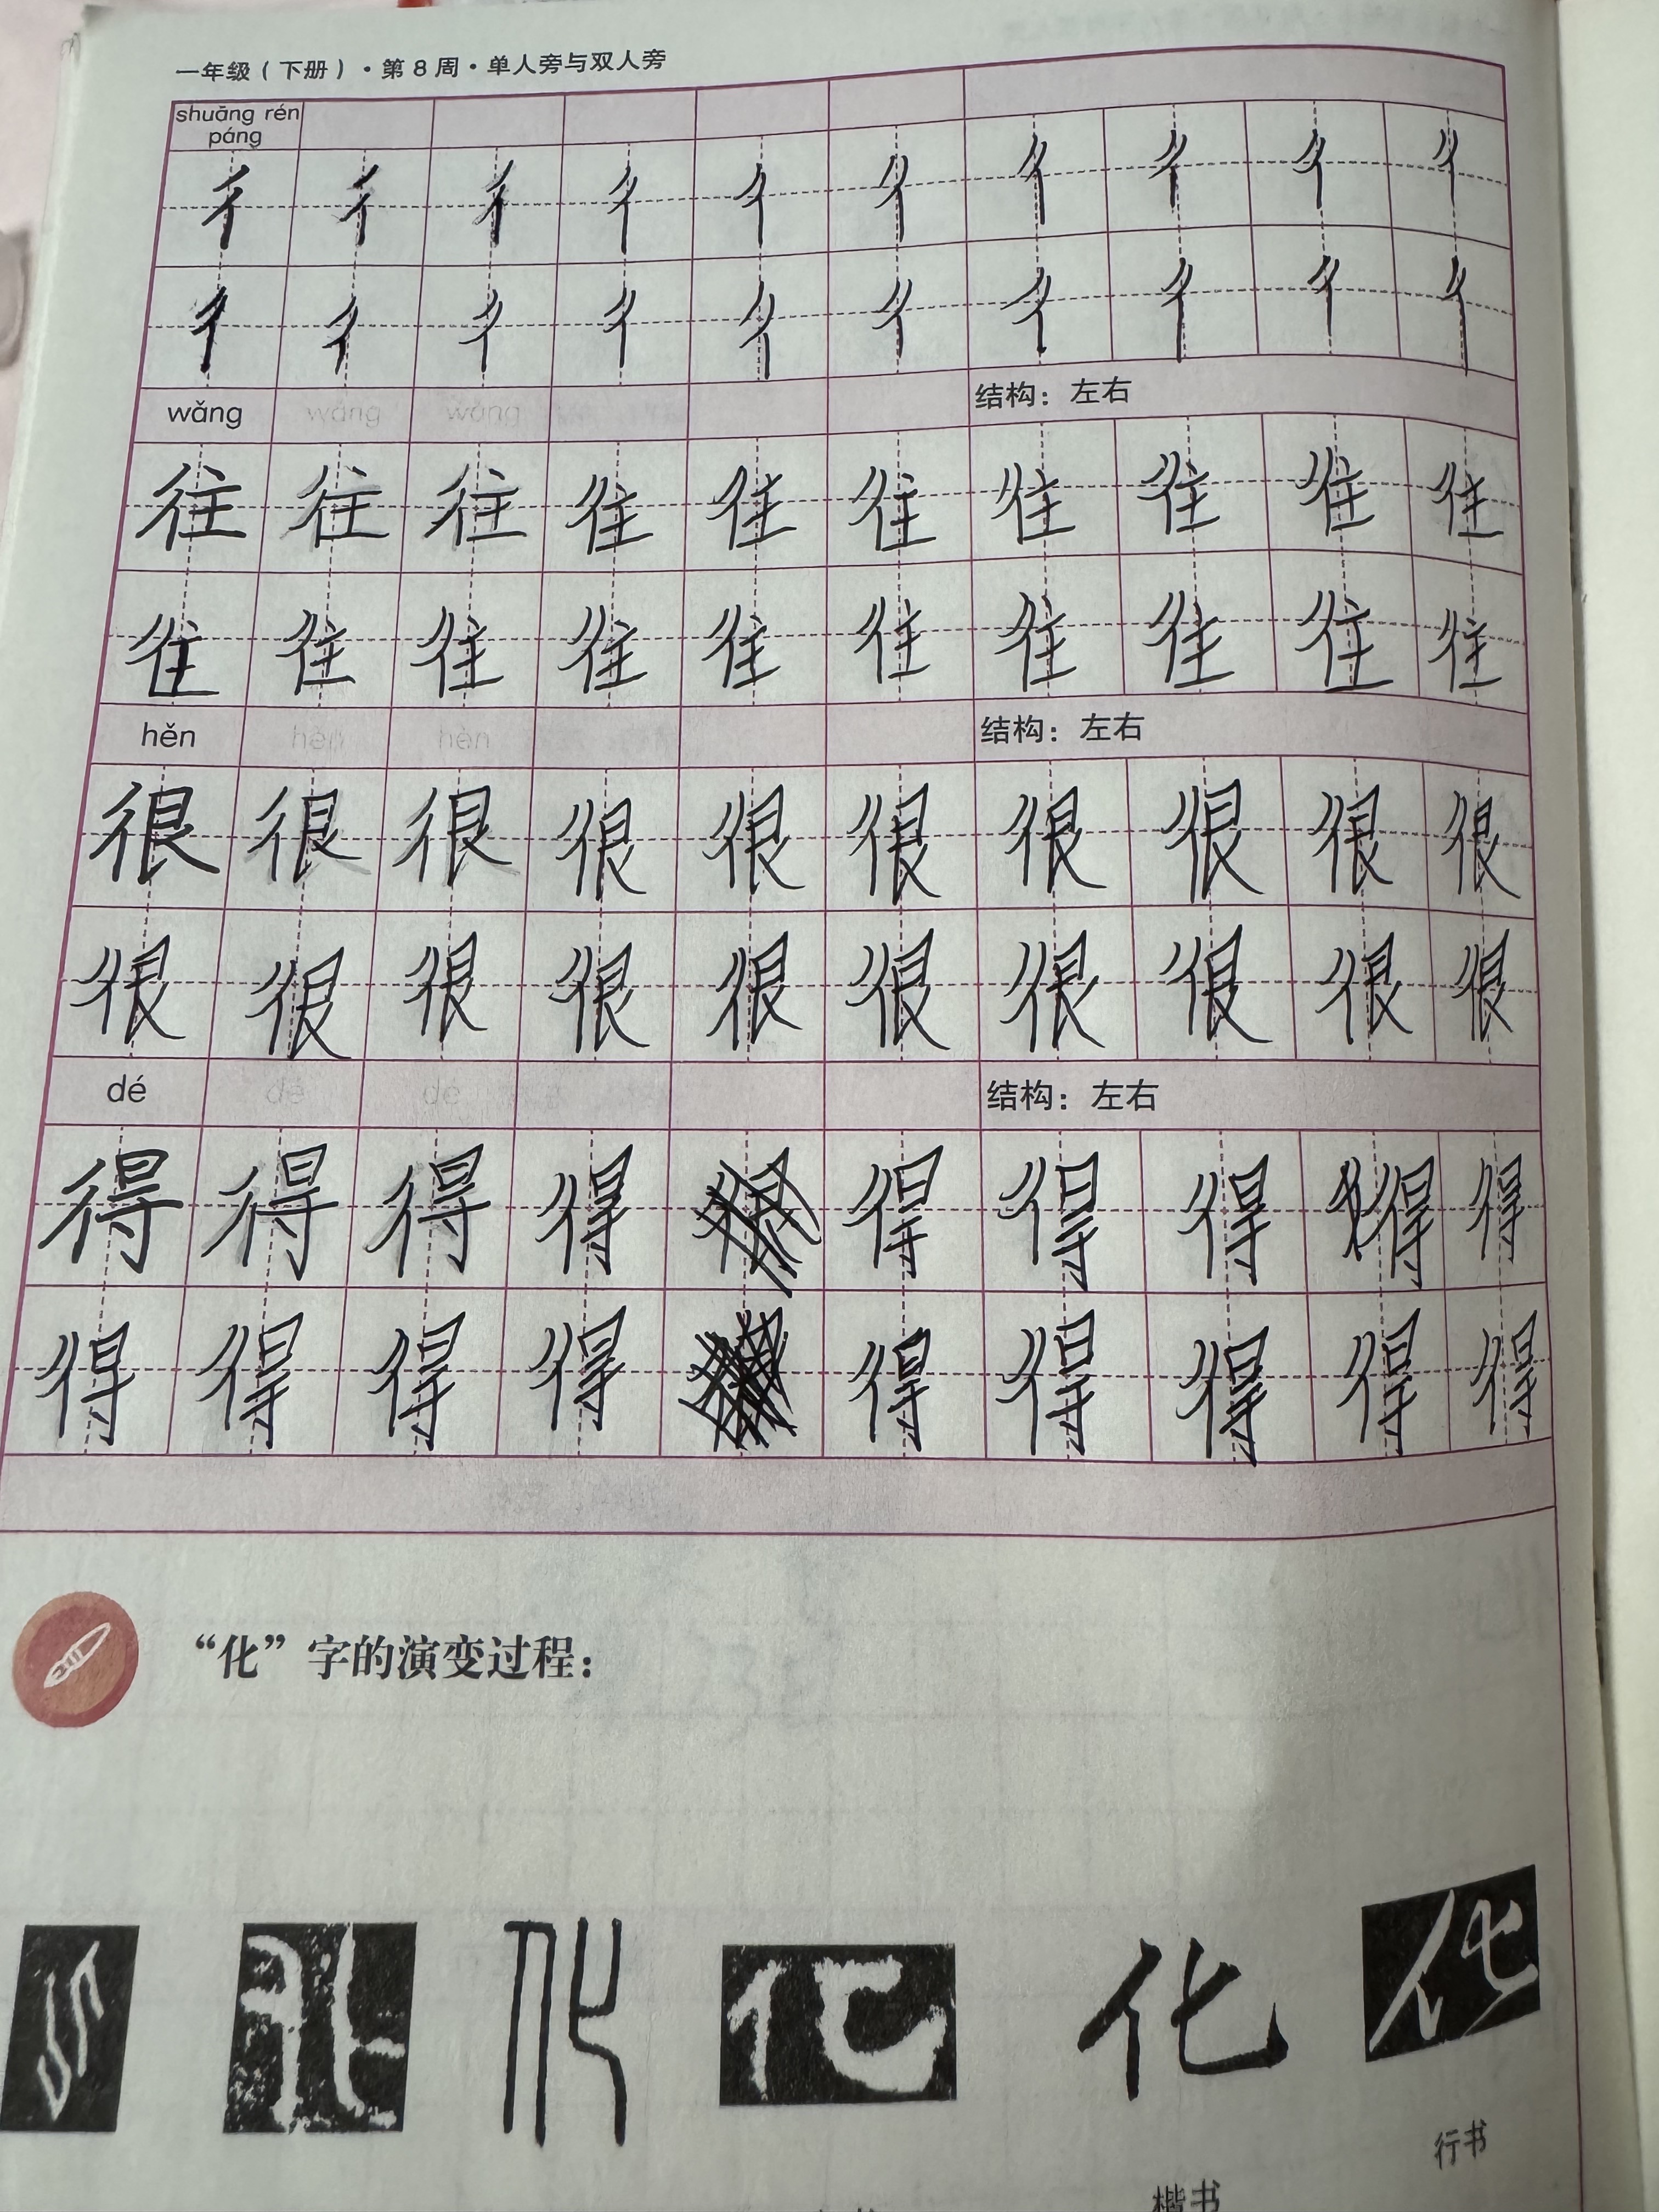 一年级（下册）·第8周·单人旁与双人旁
shuāng rén
páng
彳 彳 彳 彳 彳 彳 彳 彳 彳 彳
彳 彳 彳 彳 彳 彳 彳 彳 彳 彳
wǎng wǎng wǎng 结构：左右
往 往 往 往 往 往 往 往 往 往
往 往 往 往 往 往 往 往 往 往
hěn hěn hěn 结构：左右
很 很 很 很 很 很 很 很 很 很
很 很 很 很 很 很 很 很 很 很
dé dé dé 结构：左右
得 得 得 得 得 得 得 得 得
得 得 得 得 得 得 得 得 得
“化”字的演变过程：
化 化
行书
楷书